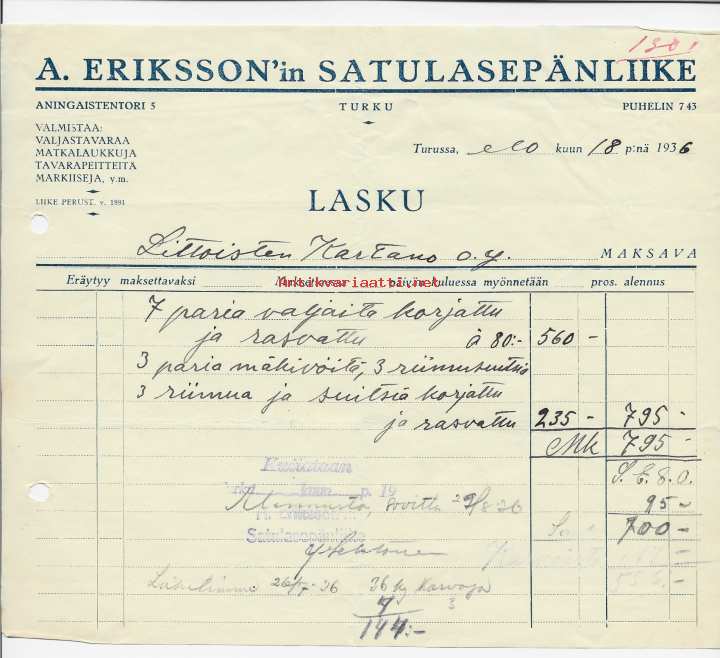 1301
A. ERIKSSON'in SATULASEPÄNLIIKE
ANINGAISTENTORI 5 TURKU PUHELIN 7 43
VALMISTAA:
VALJASTAVARAA
MATKALAUKKUJA
TAVARAPEITTEITÄ
MARKIISEJA, y.m.
Turussa, elo kuun 18 p:nä 1936
LIIKE PERUST. v. 1891
LASKU
Littoisten Kartano o.y. MAKSAVA
Eräytyy maksettavaksi päivän kuluessa myönnetään pros. alennus
Antikvariaatti.net
7 paria valjaita korjattu
ja rasvattu à 80:- 560 -
3 paria mäkivöitä, 3 riimusuitsia
3 riimua ja suitsia korjattu
ja rasvattu 235 - 795 -
Mk 795 -
S. E. & O.
Kuitataan
kuun p. 19
95 -
Alennusta, sovittu 29/8 36
700 -
Satulasepänliike
Lähetimme 26/5 - 36 36 kg Karvoja
4
144:-